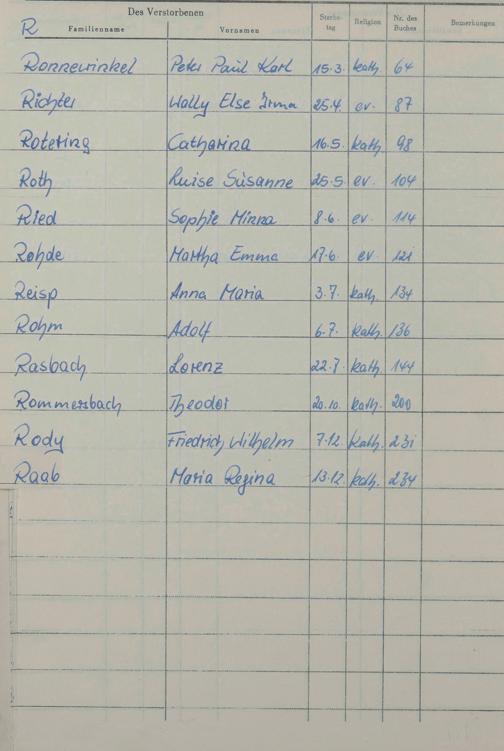 R
Des Verstorbenen
Familienname Vornamen Sterbetag Religion Nr. des Buches Bemerkungen
Ronnewinkel Peter Paul Karl 15.3. kath. 64
Richter Wally Else Irma 25.4. ev. 87
Rotering Catharina 16.5. kath. 98
Roth Luise Susanne 25.5. ev. 104
Ried Sophie Minna 8.6. ev. 114
Rohde Martha Emma 17.6. ev. 121
Reisp Anna Maria 3.7. kath. 134
Rohm Adolf 6.7. kath. 136
Rasbach Lorenz 22.7. kath. 144
Rommersbach Theodor 20.10. kath. 200
Rody Friedrich Wilhelm 7.12. kath. 231
Raab Maria Regina 13.12. kath. 234